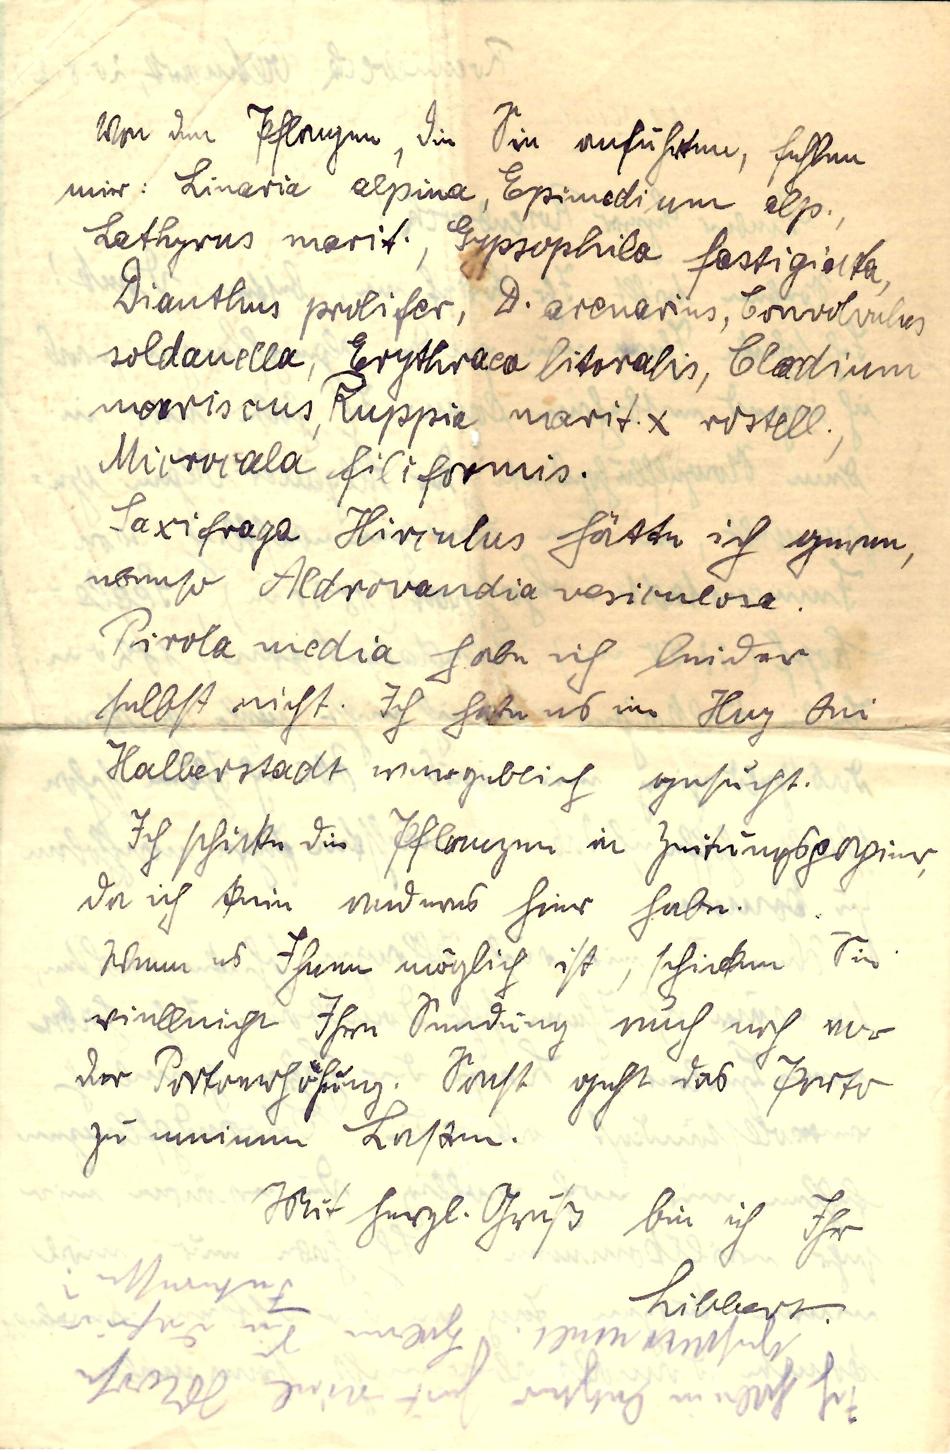 Von den Pflanzen, die Sie anführten, fehlen
mir: Linaria alpina, Epimedium alp.,
Lathyrus marit., Gypsophila fastigiata,
Dianthus prolifer, D. arenarius, Convolvulus
soldanella, Erythraea litoralis, Cladium
mariscus, Ruppia marit. x rostell.,
Microcala filiformis.
Saxifraga Hirculus hätte ich gerne,
ebenso Aldrovandia vesiculosa.
Pirola media habe ich leider
selbst nicht. Ich habe es im Huy bei
Halberstadt vergeblich gesucht.
Ich schicke die Pflanzen in Zeitungspapier,
da ich kein anderes hier habe.
Wenn es Ihnen möglich ist, schicken Sie
vielleicht Ihre Sendung auch noch vor
der Portoerhöhung. Sonst geht das Porto
zu meinen Lasten.
Mit herzl. Gruß bin ich Ihr
Libbert.
Ich habe in letzter Zeit viele Moose
gesammelt. Haben Sie dafür
Interesse?